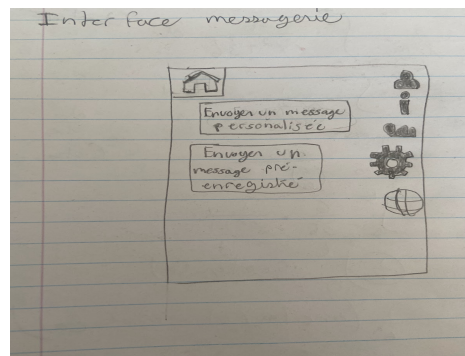 Interface messagerie
Envoyer un message
personalisée
Envoyer un
message pré-
enregistré